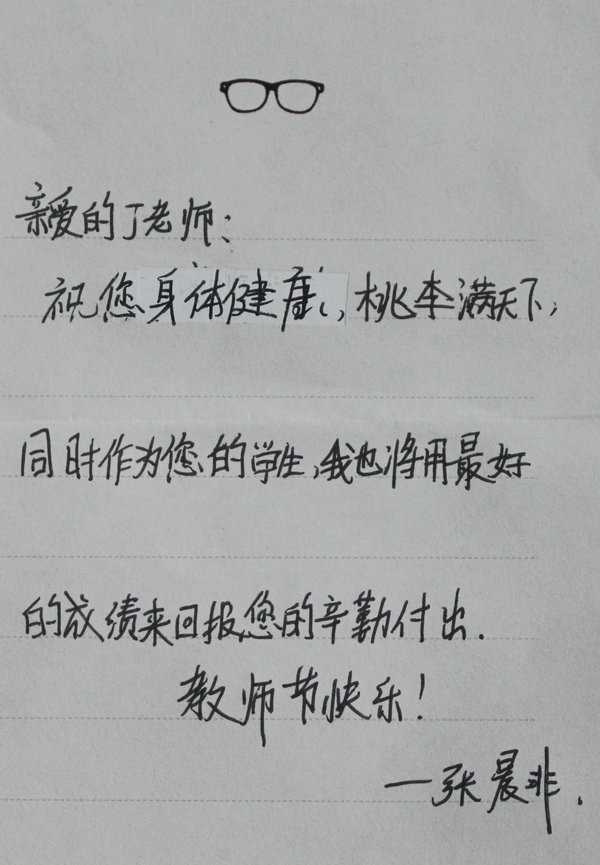 亲爱的丁老师：
祝您身体健康，桃李满天下，
同时作为您的学生，我也将用最好
的成绩来回报您的辛勤付出.
教师节快乐！
—张晨非.